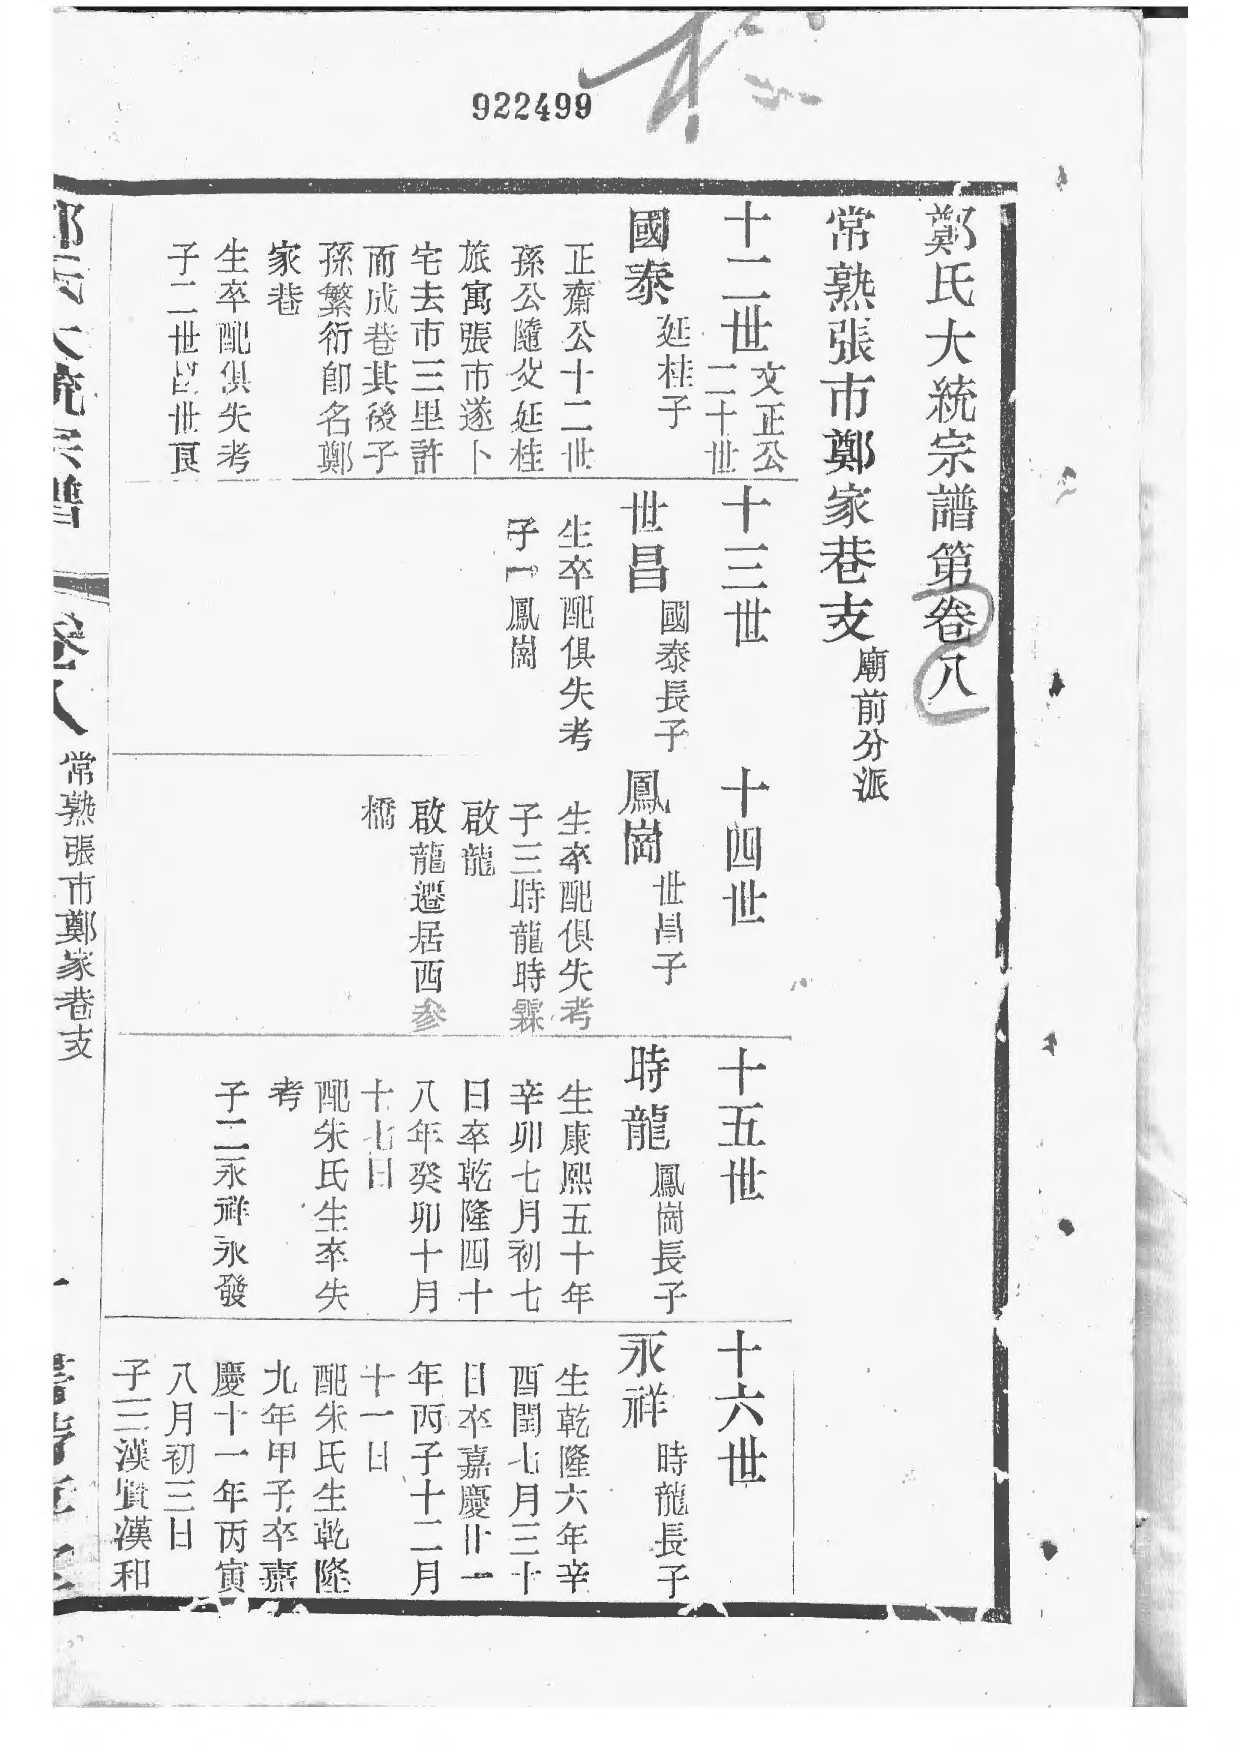 922499
鄭氏大統宗譜第卷八
常熟張市鄭家巷支 廟前分派
十二世 文正公
二十世
國泰 延桂子
正齋公十二世
孫公隨父延桂
旅寓張市遂卜
宅去市三里許
而成巷其後子
孫繁衍卽名鄭
家巷
生卒配俱失考
子二世昌世良
十三世
世昌 國泰長子
生卒配俱失考
子一鳳崗
十四世
鳳崗 世昌子
生卒配俱失考
子三時龍時霖
啟龍
啟龍遷居西參
橋
十五世
時龍 鳳崗長子
生康熙五十年
辛卯七月初七
日卒乾隆四十
八年癸卯十月
十七日
配朱氏生卒失
考
子二永祥永發
十六世
永祥 時龍長子
生乾隆六年辛
酉閏七月三十
日卒嘉慶廿一
年丙子十二月
十一日
配朱氏生乾隆
九年甲子卒嘉
慶十一年丙寅
八月初三日
子三漢賓漢和
鄭氏大統宗譜
卷八
常熟張市鄭家巷支
一